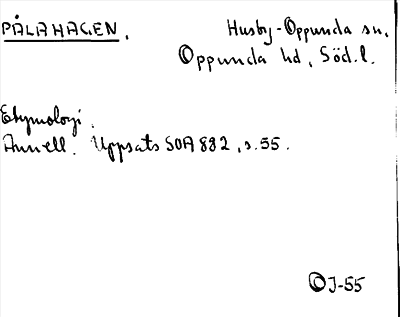 PÅLAHAGEN.
Husby-Oppunda sn.
Oppunda hd, Söd.l.
Etymologi.
Annell. Uppsats SOA 882, s.55.
OJ-55